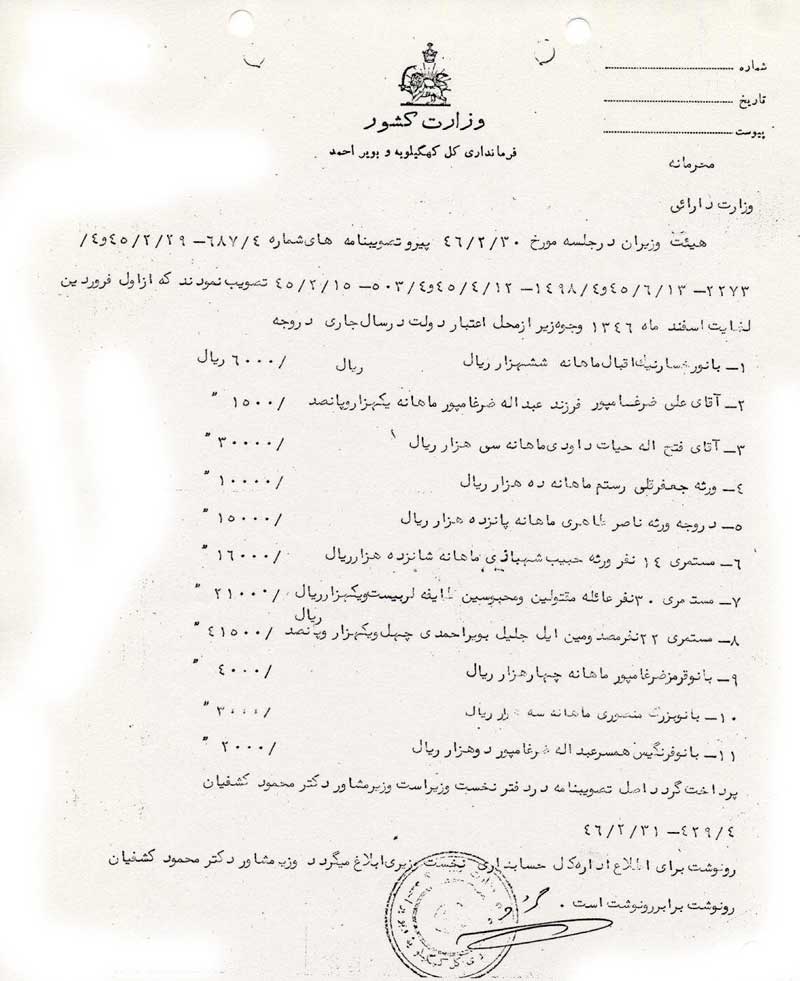 شماره
تاریخ
پیوست
وزارت کشور
فرمانداری کل کهگیلویه و بویر احمد
محرمانه
وزارت دارائی
هیئت وزیران درجلسه مورخ ۴۶/۲/۳۰ پیرو تصویبنامه های شماره ۶۸۷/۴–۴۵/۲/۲۹ و۴/
۲۲۷۳–۴۵/۶/۱۳ و۱۴۹۸/۴–۴۵/۴/۱۲ و۵۰۳/۴–۴۵/۲/۱۵ تصویب نمودند که ازاول فروردین
لغایت اسفند ماه ۱۳۴۶ وجوه زیر ازمحل اعتبار دولت درسال جاری دروجه
۱– بانو رخسارنیک اقبال ماهانه ششهزار ریال ریال /۶۰۰۰ ریال
۲– آقای علی ضرغامپور فرزند عبداله ضرغامپور ماهانه یکهزاروپانصد /۱۵۰۰ "
۳– آقای فتح اله حیات داودی ماهانه سی هزار ریال /۳۰۰۰۰ "
۴– ورثه جعفرقلی رستم ماهانه ده هزار ریال /۱۰۰۰۰ "
۵– دروجه ورثه ناصر طاهری ماهانه پانزده هزار ریال /۱۵۰۰۰ "
۶– مستمری ۱۴ نفر ورثه حبیب شهبازی ماهانه شانزده هزارریال /۱۶۰۰۰ "
۷– مستمری ۳۰ نفر عائله مقتولین ومحبوسین طایفه لر بیست ویکهزارریال /۲۱۰۰۰ "
ریال
۸– مستمری ۲۲ نفر مصدومین ایل جلیل بویراحمدی چهل ویکهزار وپانصد /۴۱۵۰۰ "
۹– بانو قرمز ضرغامپور ماهانه چهارهزار ریال /۴۰۰۰ "
۱۰– بانو بزرگ منصوری ماهانه سه هزار ریال /۳۰۰۰ "
۱۱– بانو فرنگیس همسر عبداله ضرغامپور دوهزار ریال /۲۰۰۰ "
پرداخت گردد اصل تصویبنامه دردفتر نخست وزیراست وزیرمشاور دکتر محمود کشفیان
۴۲۹/۴–۴۶/۲/۳۱
رونوشت برای اطلاع اداره کل حسابداری نخست وزیری ابلاغ میگردد وزیر مشاور دکتر محمود کشفیان
رونوشت برابر رونوشت است .